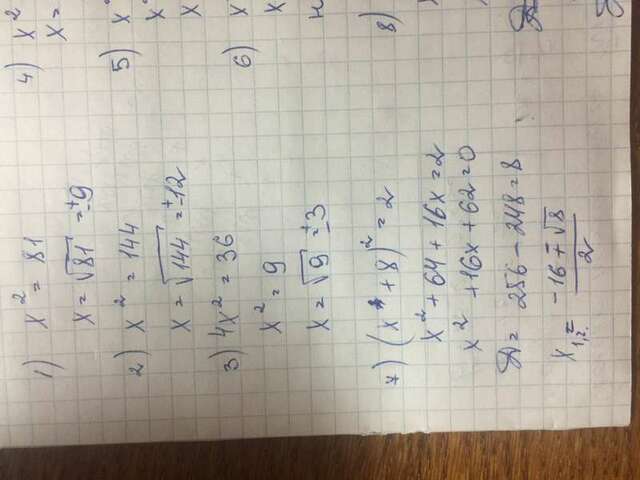 1) x² = 81
x = √81 = ±9
2) x² = 144
x = √144 = ±12
3) 4x² = 36
x² = 9
x = √9 ±3
7) (x + 8)² = 2
x² + 64 + 16x = 2
x² + 16x + 62 = 0
D = 256 - 248 = 8
x₁,₂ = (-16 ± √8)/2
4) x²
x =
5) x
x
x
6) x
x
8)